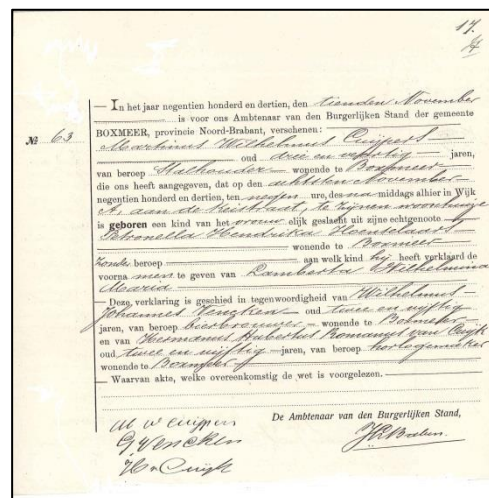 17.
№ 63
— In het jaar negentien honderd en dertien, den tienden November
is voor ons Ambtenaar van den Burgerlijken Stand der gemeente
BOXMEER, provincie Noord-Brabant, verschenen:
Martinus Wilhelmus Cuijpers
oud drie en veertig jaren,
van beroep Stalhouder — wonende te Boxmeer
die ons heeft aangegeven, dat op den achtsten November
negentien honderd en dertien, ten negen ure, des na-middags alhier in Wijk
A, aan de straat, te zijnen woonhuize
is geboren een kind van het vrouwelijk geslacht uit zijne echtgenoote
Petronella Hendrika Hentelaars
wonende te Boxmeer
zonder beroep — aan welk kind hij heeft verklaard de
voornamen te geven van Lamberta Wilhelmina
Maria
— Deze verklaring is geschied in tegenwoordigheid van Wilhelmus
Johannes Vencken — oud twee en vijftig
jaren, van beroep bierbrouwer — wonende te Boxmeer
en van Hermanus Hubertus Romanus van Cuijk
oud twee en vijftig — jaren, van beroep horlogemaker
wonende te Boxmeer
— Waarvan akte, welke overeenkomstig de wet is voorgelezen. —
De Ambtenaar van den Burgerlijken Stand,
M W Cuijpers
Vencken
H v Cuijk